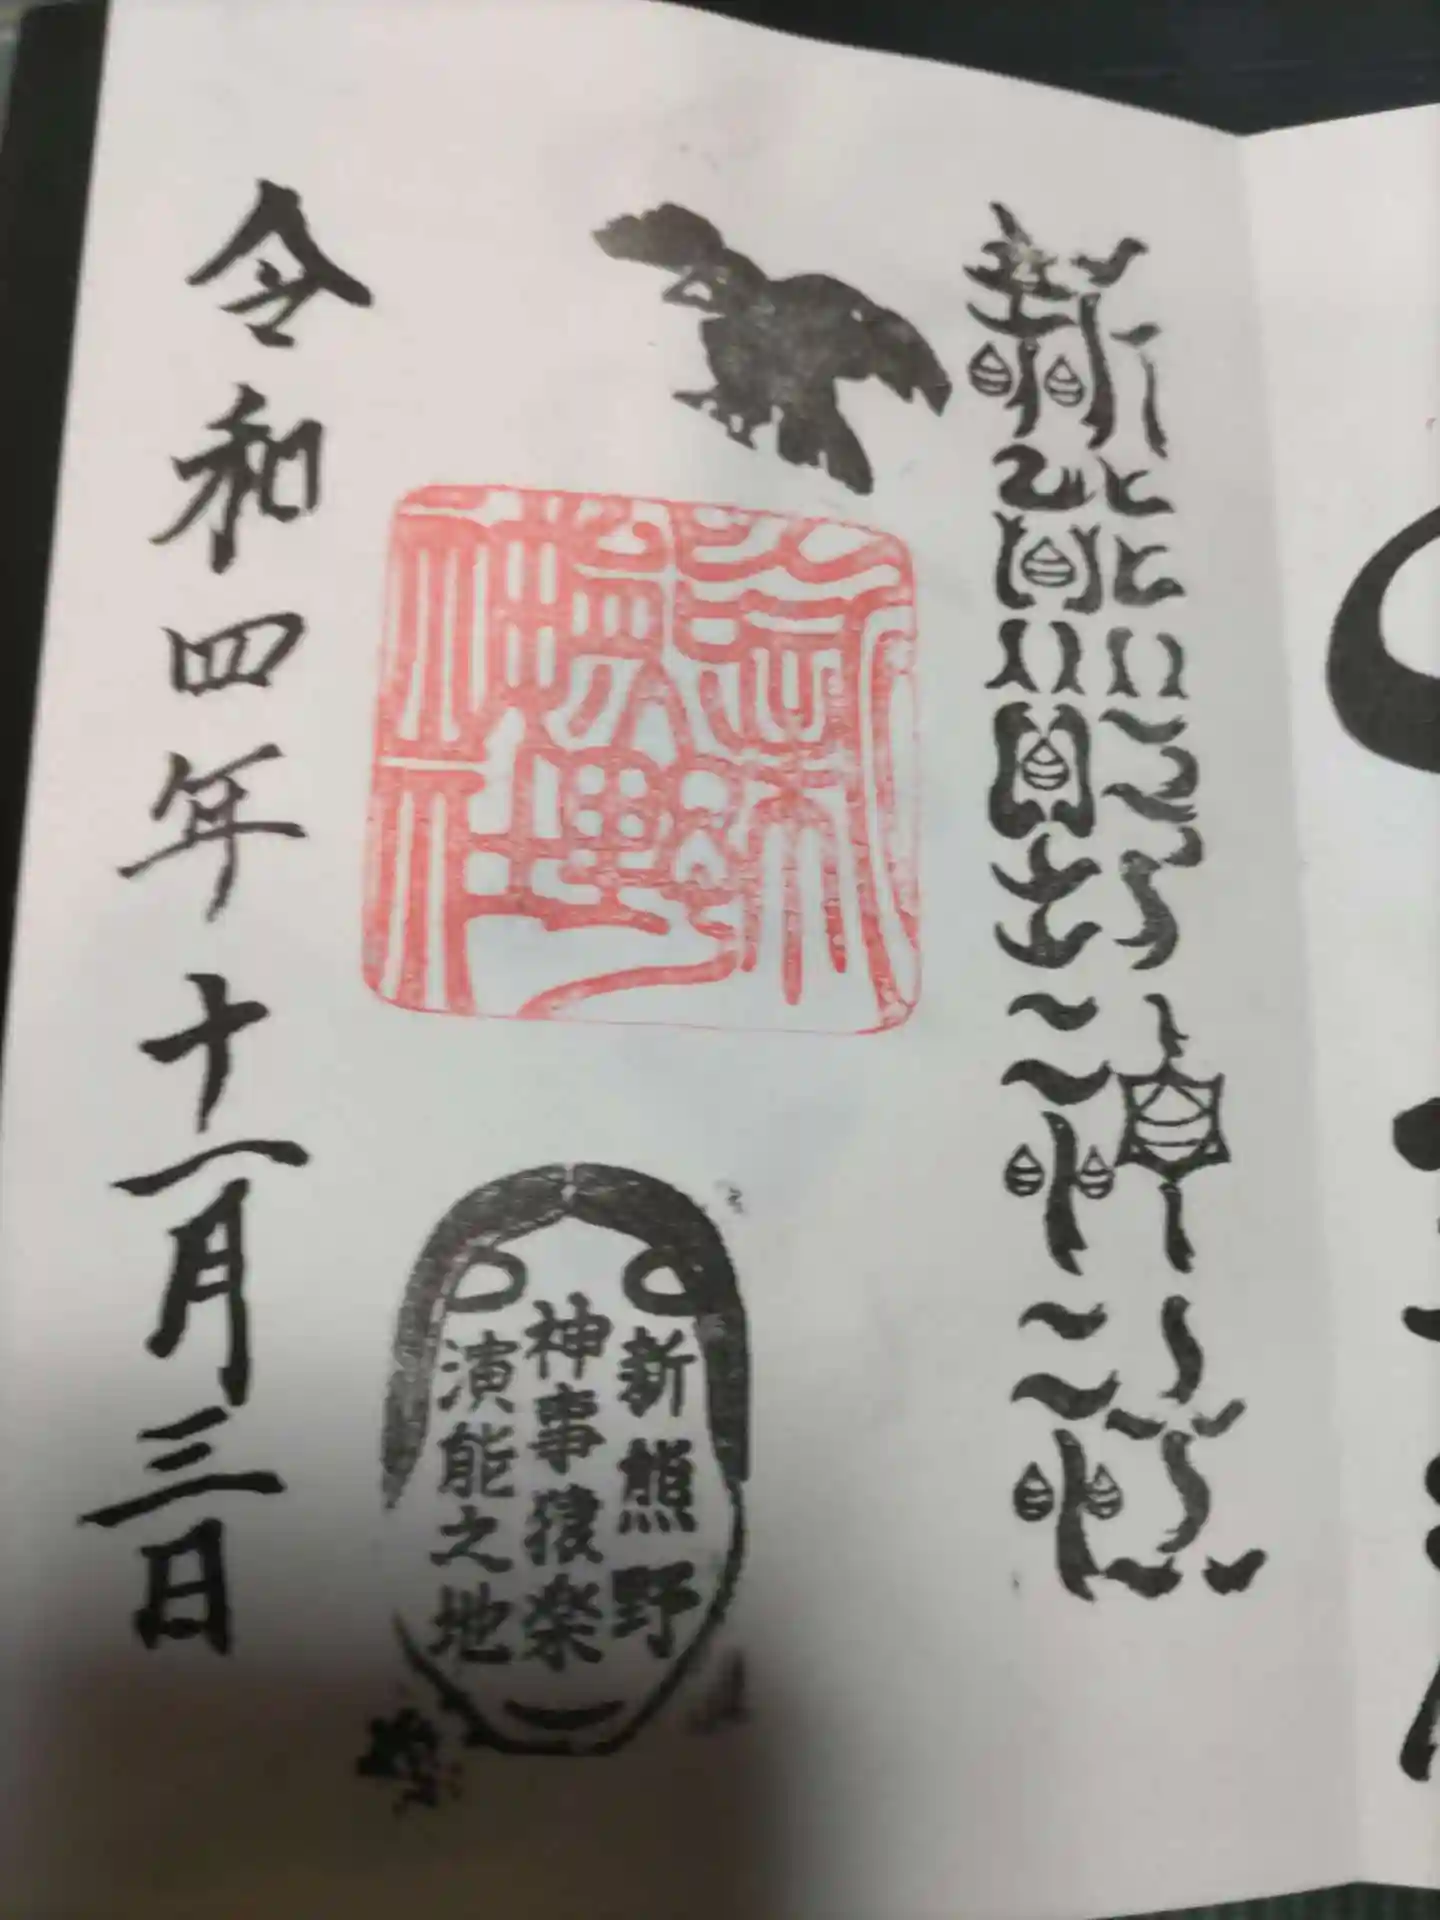 新熊野神社
新熊野神社
新熊野
神事猿楽
演能之地
令和四年十一月三日